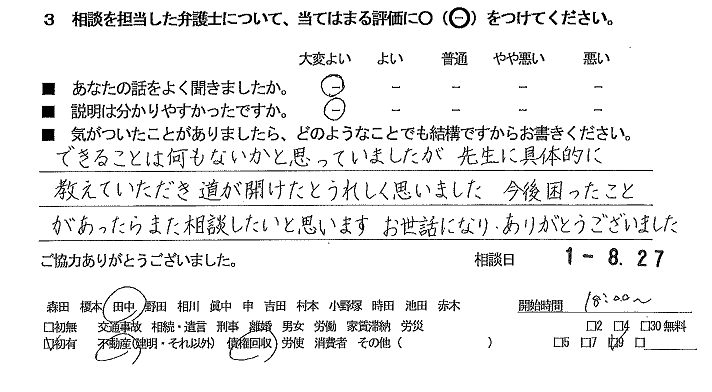 3 相談を担当した弁護士について、当てはまる評価に○(⊖)をつけてください。
大変よい よい 普通 やや悪い 悪い
■ あなたの話をよく聞きましたか。 － － － － －
■ 説明は分かりやすかったですか。 － － － － －
■ 気がついたことがありましたら、どのようなことでも結構ですからお書きください。
できることは何もないかと思っていましたが 先生に具体的に
教えていただき 道が開けたとうれしく思いました 今後困ったこと
があったらまた相談したいと思います お世話になり・ありがとうございました
ご協力ありがとうございました。 相談日 1-8.27
森田 榎本 田中 野田 相川 眞中 申 吉田 村本 小野塚 時田 池田 赤木 開始時間 18:00～
□初無 交通事故 相続・遺言 刑事 離婚 男女 労働 家賃滞納 労災 □2 □4 □30無料
□初有 不動産(建明・それ以外) 債権回収 労使 消費者 その他( ) □5 □7 □9 □